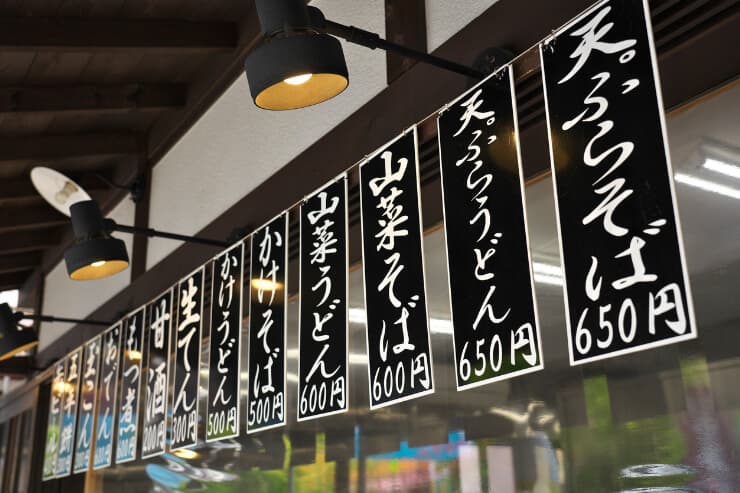 天ぷらそば
650円
天ぷらうどん
650円
山菜そば
600円
山菜うどん
600円
かけそば
500円
かけうどん
500円
生てん
300円
甘酒
200円
もつ煮
おでん
玉こん
五平餅